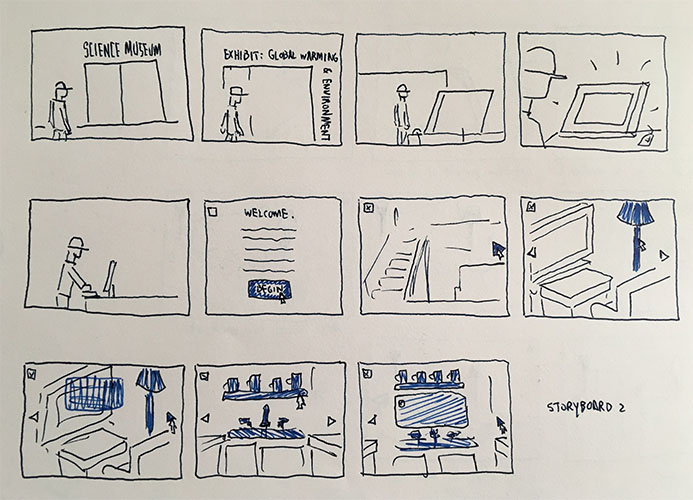 SCIENCE MUSEUM
EXHIBIT: GLOBAL WARMING
& ENVIRONMENT
WELCOME.
BEGIN
STORYBOARD 2